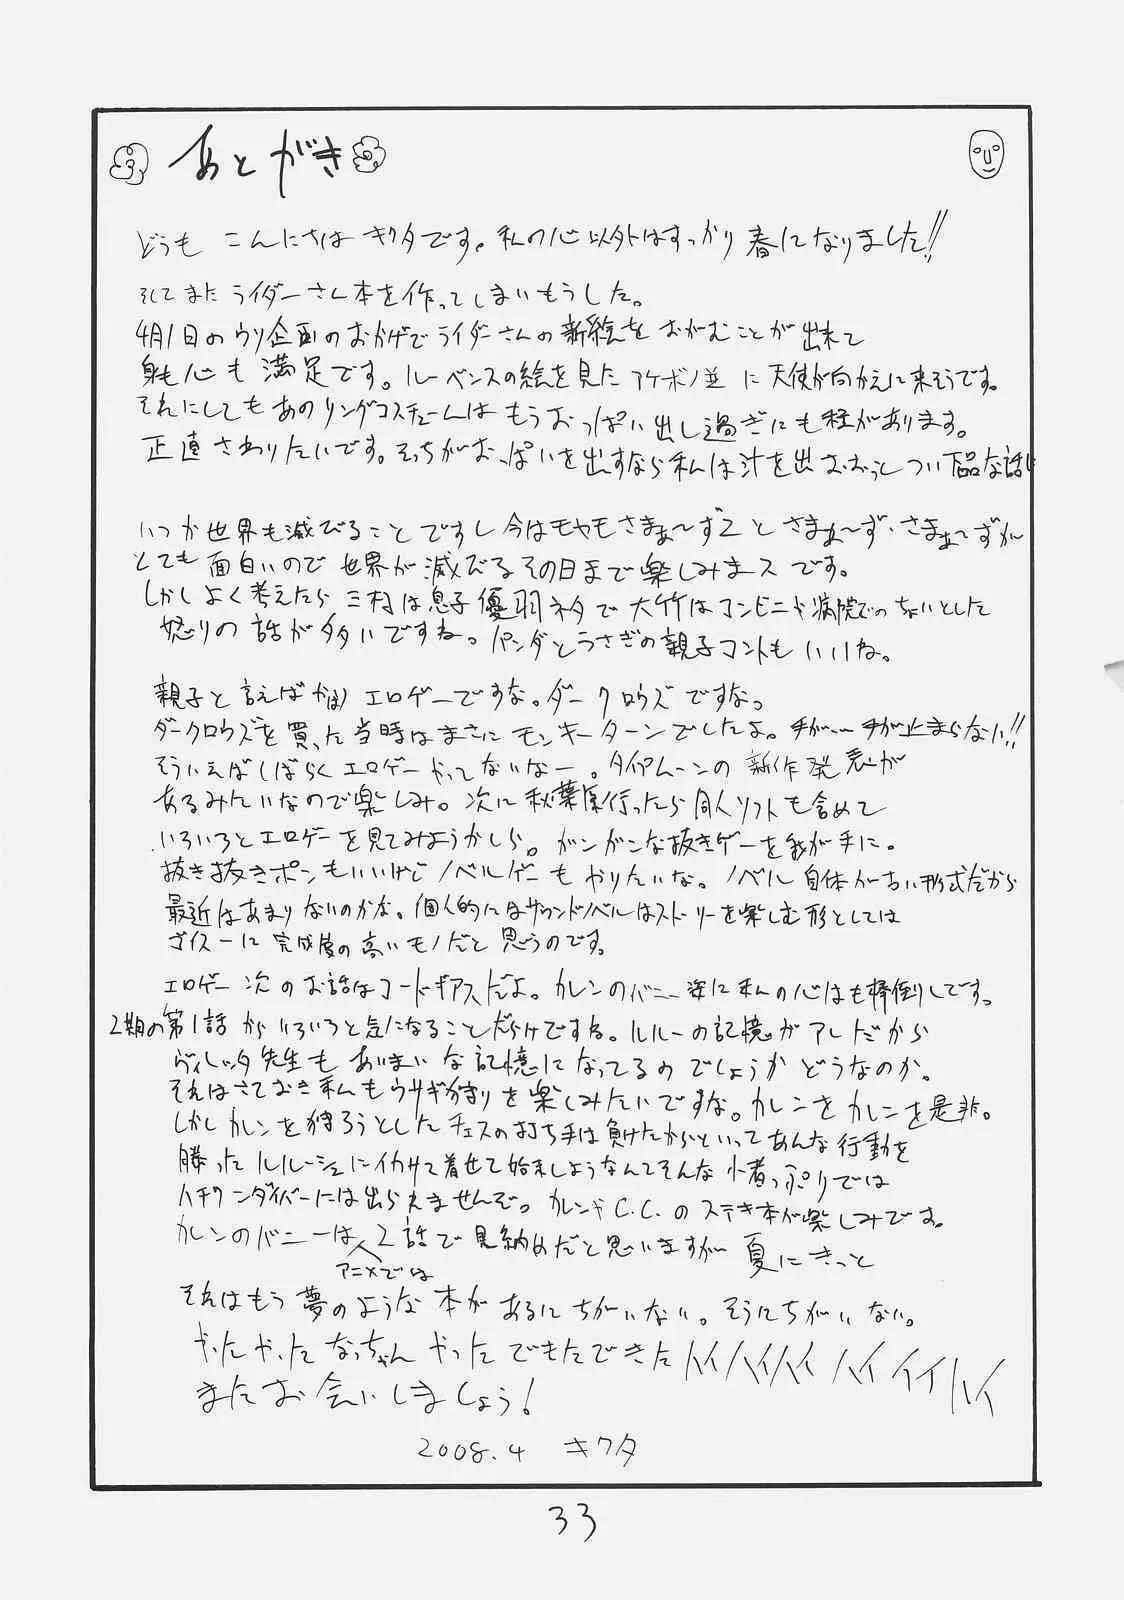 あとがき
どうも こんにちは キクタです。私の心以外はすっかり春になりました!!
そしてまたライダーさん本を作ってしまいもうした。
4月1日のウソ企画のおかげでライダーさんの新絵をおがむことが出来て
身も心も満足です。ルーベンスの絵を見たアケボノ並に天使が向かえに来そうです。
それにしてもあのリングコスチュームはもうおっぱい出し過ぎにも程があります。
正直さわりたいです。そっちがおっぱいを出すなら私は汁を出おおっとつい下品な話に
いつか世界も滅びることですし今はモヤモヤさまぁ〜ず2とさまぁ〜ず・さまぁ〜ずが
とても面白いので世界が滅びるその日まで楽しみまスです。
しかしよく考えたら三村は息子優羽ネタで大竹はコンビニや病院でのちょいとした
怒りの話が多いですね。パンダとうさぎの親子コントもいいね。
親子と言えばやはりエロゲーですな。ダークロウズですな。
ダークロウズを買った当時はまさにモンキーターンでしたよ。手が…手が止まらない!!
そういえばしばらくエロゲーやってないなー。タイプムーンの新作発表が
あるみたいなので楽しみ。次に秋葉原行ったら同人ソフトも含めて
いろいろとエロゲーを見てみようかしら。ガンガンな抜きゲーを我が手に。
抜き抜きポンもいいけどノベルゲーもやりたいな。ノベル自体が古い形式だから
最近はあまりないのかな。個人的にはサウンドノベルはストーリーを楽しむ形としては
ヴィスーに完成度の高いモノだと思うのです。
エロゲー次のお話はコードギアスだよ。カレンのバニー姿に私の心はも棒倒しです。
2期の第1話からいろいろと気になることだらけですね。ルルーの記憶がアレだから
ヴィレッタ先生もあいまいな記憶になってるのでしょうかどうなのか。
それはさておき私もウサギ狩りを楽しみたいですな。カレンをカレンを是非。
しかしカレンを狩ろうとしたチェスの打ち手は負けたからといってあんな行動を
勝ったルルーシュにイカサマ着せて始末しようなんてそんな小者っぷりでは
ハチワンダイバーには出られませんぞ。カレンやC.C.のステキ本が楽しみです。
カレンのバニーはアニメでは2話で見納めだと思いますが夏にきっと
それはもう夢のような本があるにちがいない。そうにちがいない。
やったやったなっちゃんやったでもたできたハイハイハイ ハイ イイ ハイ
またお会いしましょう!
2008.4 キクタ
33